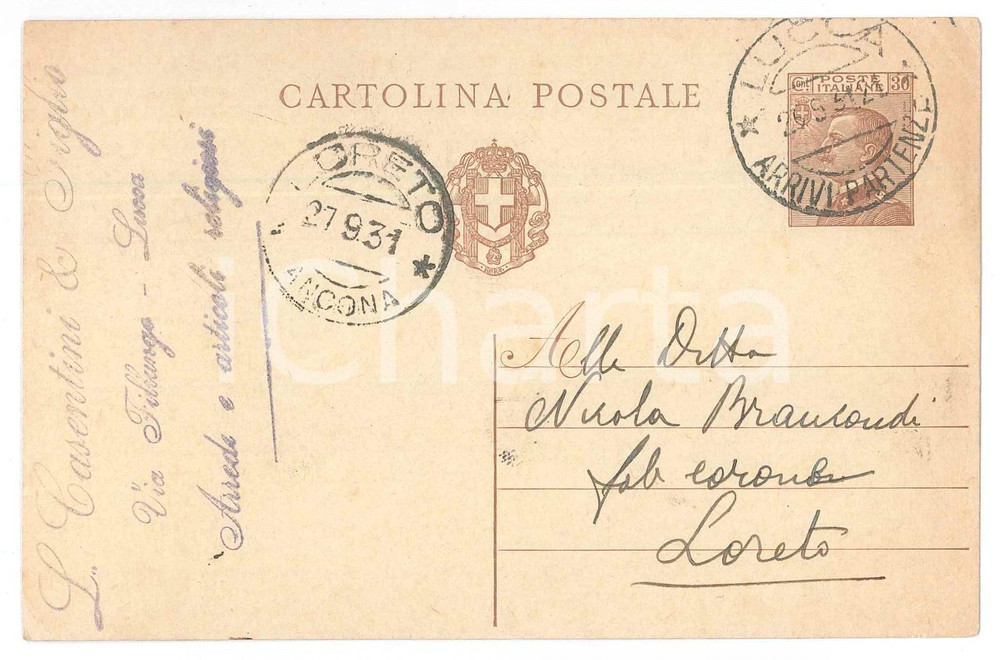 CARTOLINA POSTALE
POSTE ITALIANE
30
LUCCA
ARRIVI PARTENZE
LORETO
27 9 31
ANCONA
L. Casentini & Figlio
Via Fillungo - Lucca
Arredi e articoli religiosi
Alla Ditta
Nicola Brancondi
fab corone
Loreto
iCharta